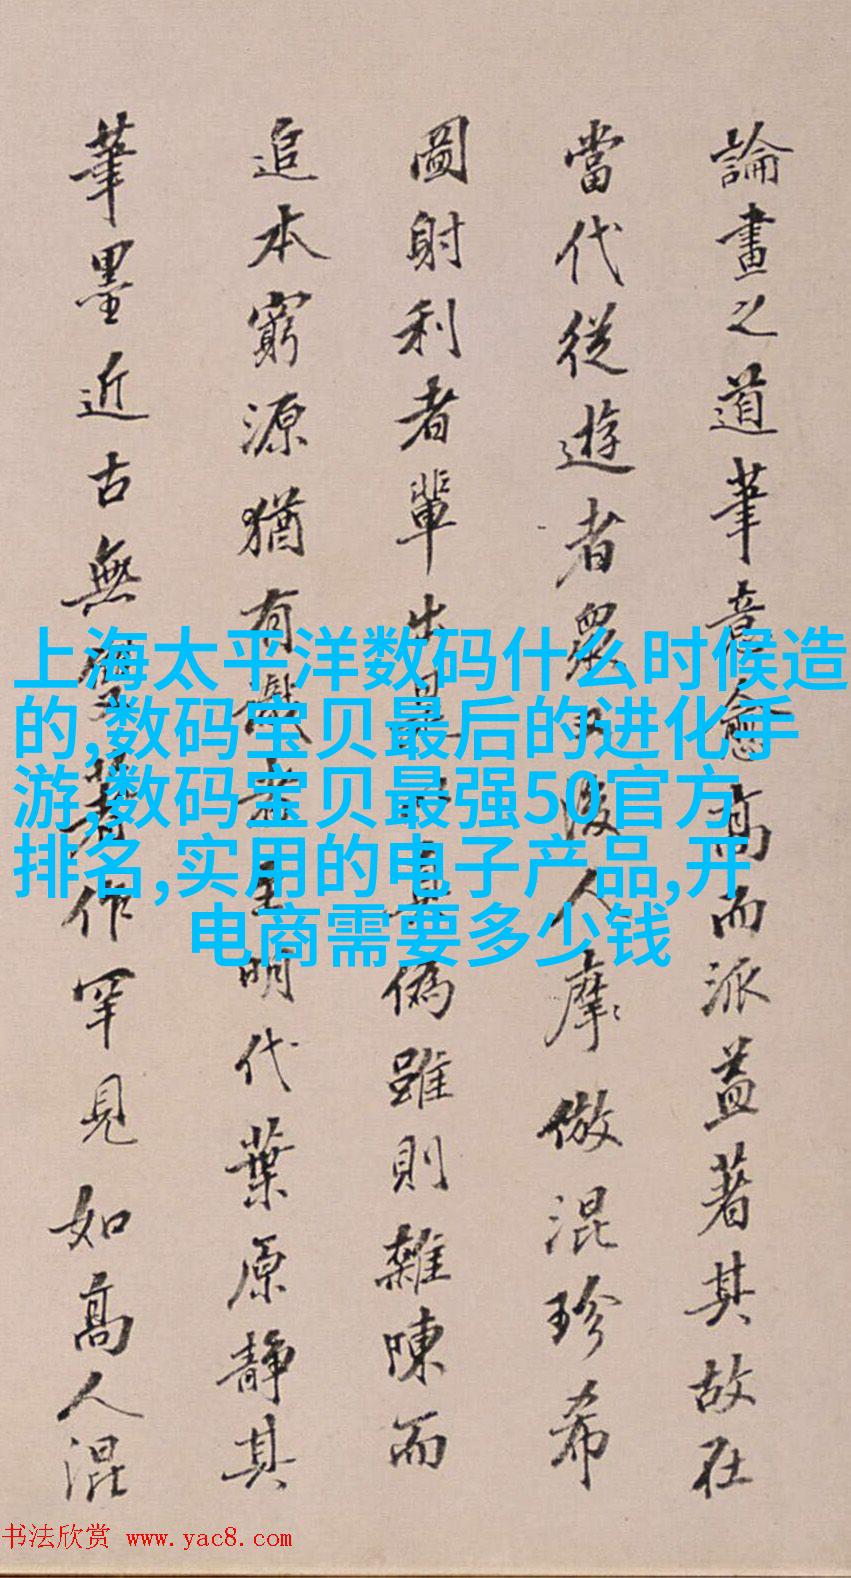 論畫之道筆意愈高而派益著其故在
當代從遊者眾又後人摩倣混珍希
圖射利者輩出真偽雖則雜陳而
追本窮源猶有識者明代葉原靜其
筆墨近古無著作罕見如高人混
上海太平洋数码什么时候造
的,数码宝贝最后的进化手
游,数码宝贝最强50官方
排名,实用的电子产品,开
电商需要多少钱
书法欣赏 www.yac8.com